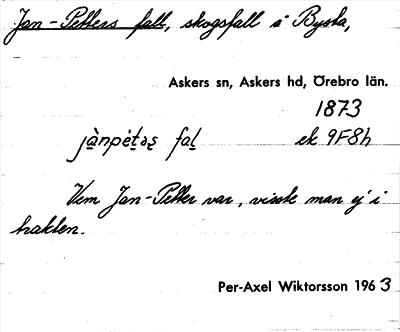 Jan-Petters fall, skogsfall å Bysta,
Askers sn, Askers hd, Örebro län.
1873
jànpètəʂ fal̠ ek 9F8h
Vem Jan-Petter var, visste man ej i
trakten.
Per-Axel Wiktorsson 1963